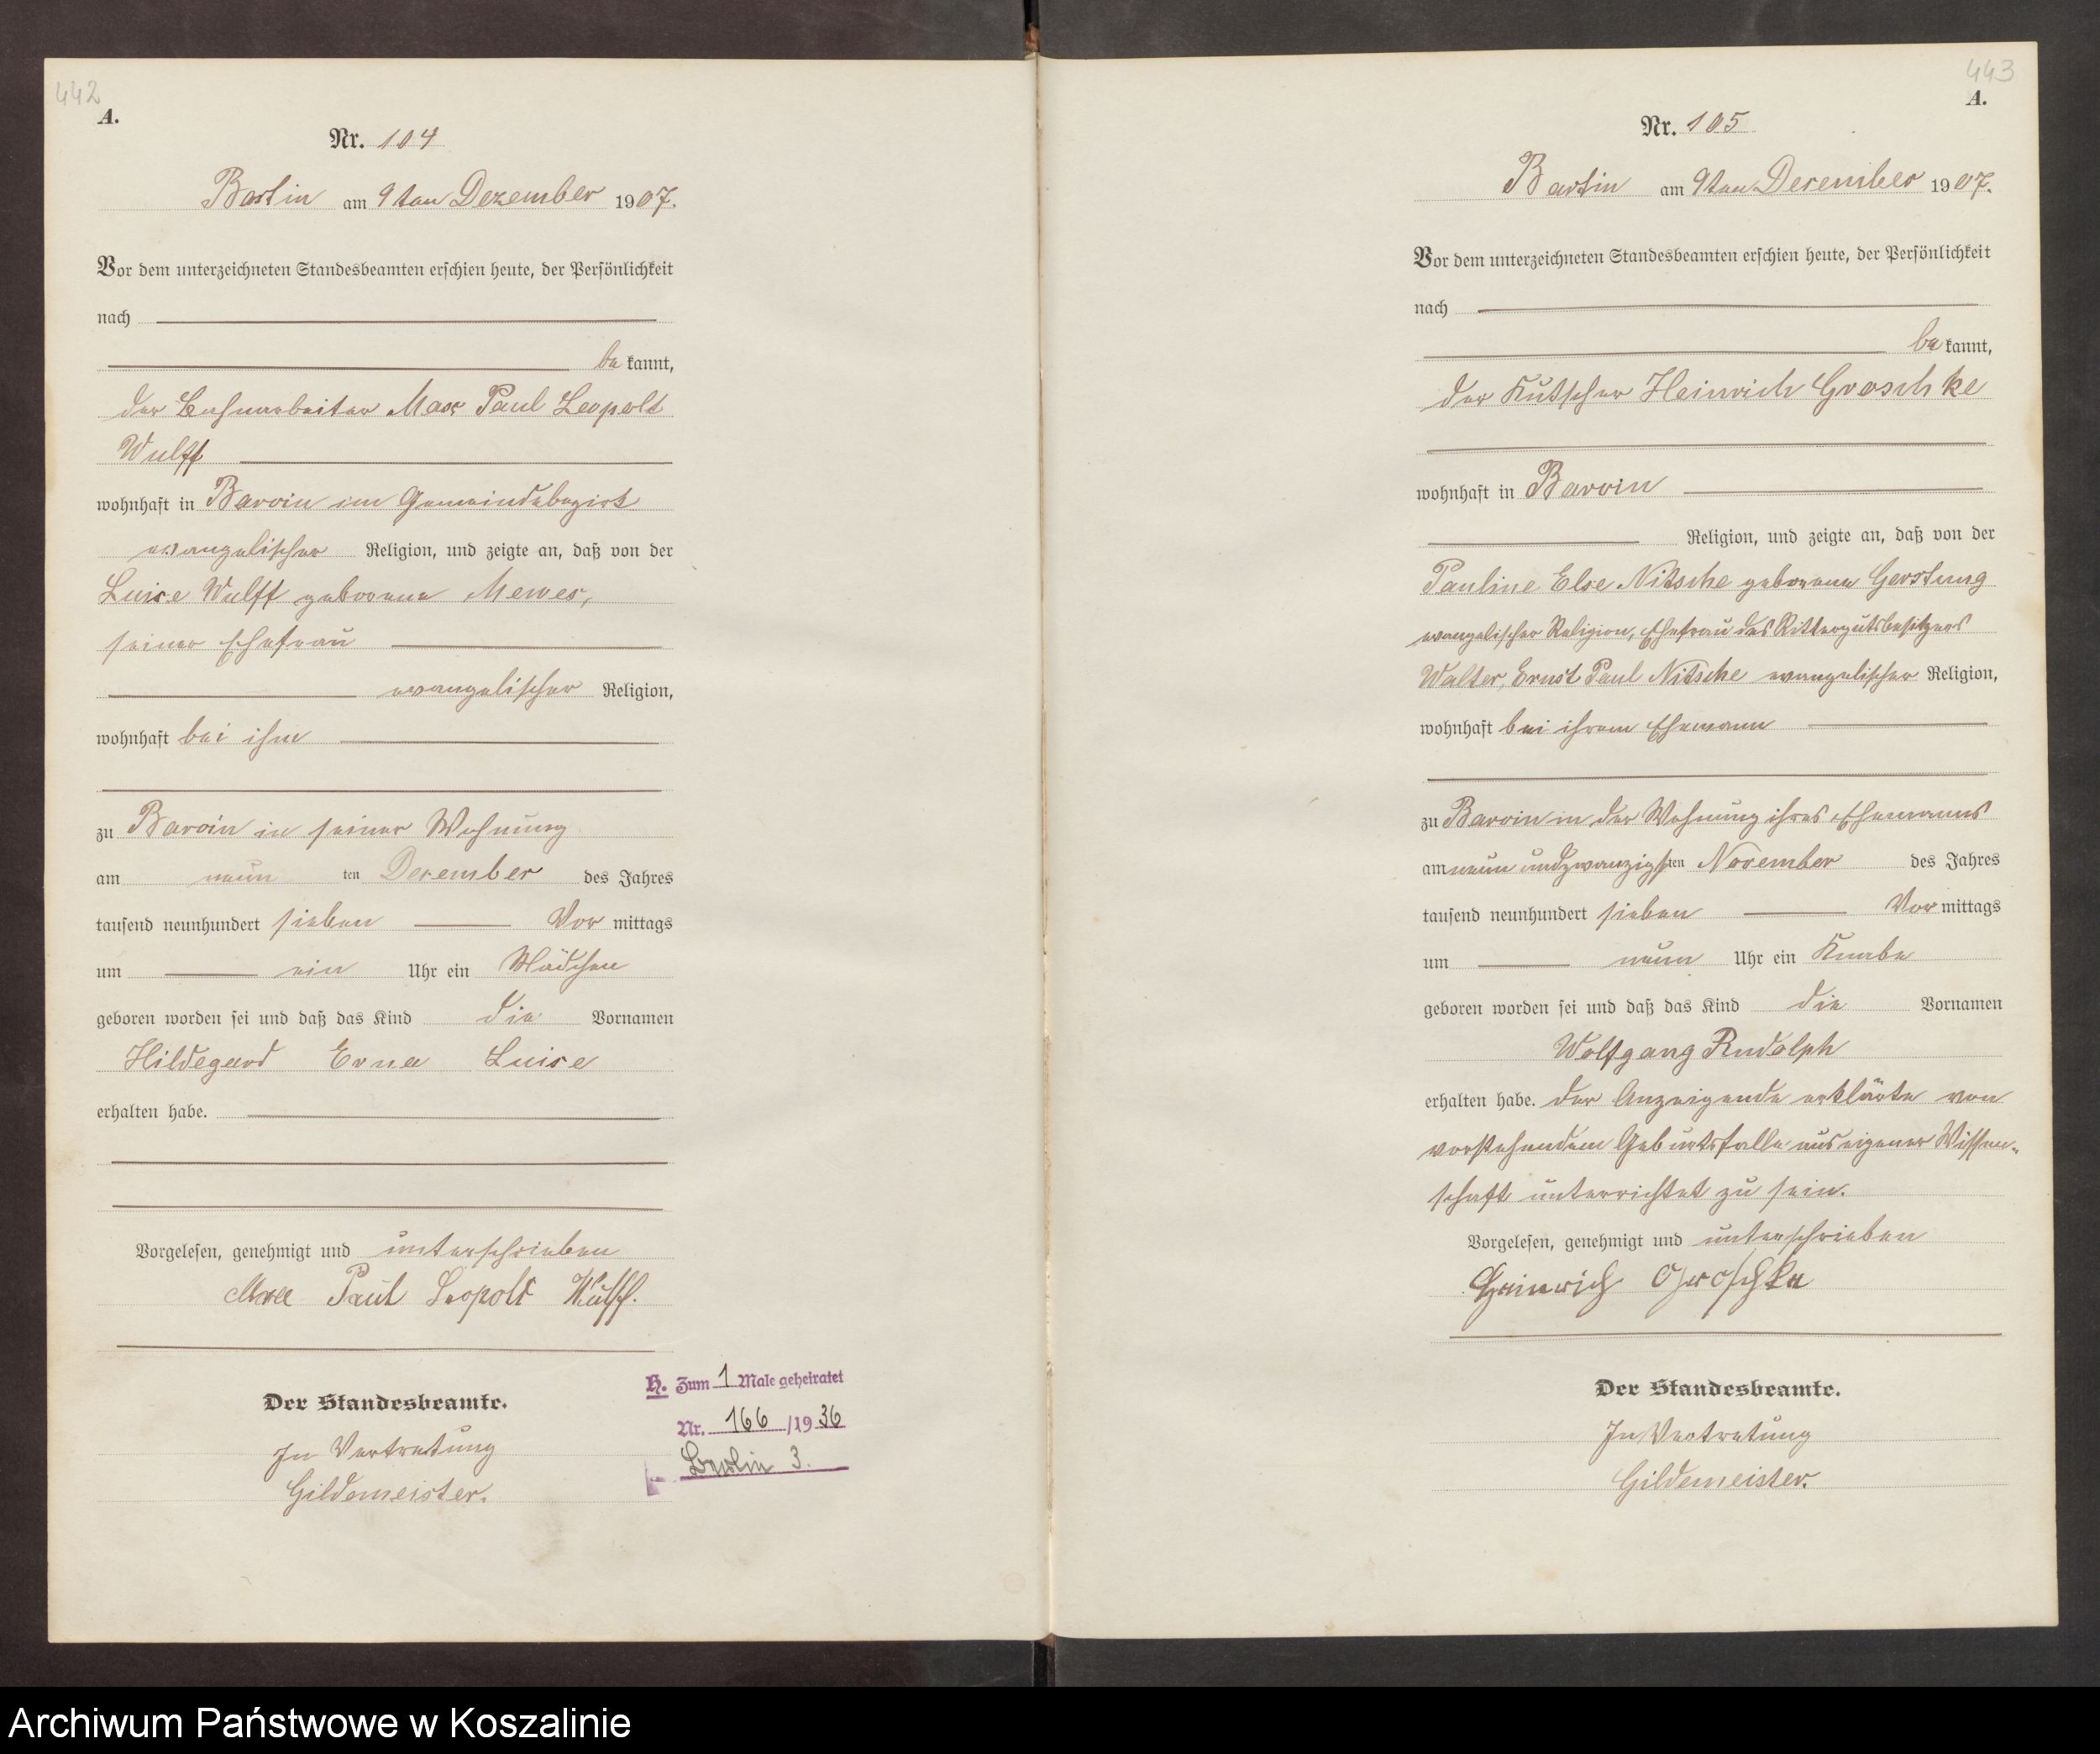 442
A.
Nr. 104
Bartin am 9ten Dezember 1907.
Vor dem unterzeichneten Standesbeamten erschien heute, der Persönlichkeit
nach
bekannt,
der Bahnarbeiter Max Paul Leopold
Wulff
wohnhaft in Barvin im Gemeindebezirk
evangelischer Religion, und zeigte an, daß von der
Luise Wulff geborene Mewes,
seiner Ehefrau
evangelischer Religion,
wohnhaft bei ihm
zu Barvin in seiner Wohnung
am neun ten Dezember des Jahres
tausend neunhundert sieben Vor mittags
um ein Uhr ein Mädchen
geboren worden sei und daß das Kind die Vornamen
Hildegard Erna Luise
erhalten habe.
Vorgelesen, genehmigt und unterschrieben
Max Paul Leopold Wulff.
Der Standesbeamte.
In Vertretung
Gildemeister.
H. Zum 1 Male geheiratet
Nr. 166 /1936
Berlin 3.
443
A.
Nr. 105
Bartin am 9ten Dezember 1907.
Vor dem unterzeichneten Standesbeamten erschien heute, der Persönlichkeit
nach
bekannt,
der Kutscher Heinrich Groschke
wohnhaft in Barvin
Religion, und zeigte an, daß von der
Pauline Else Nitsche geborene Gerstung
evangelischer Religion, Ehefrau des Rittergutsbesitzers
Walter, Ernst Paul Nitsche evangelischer Religion,
wohnhaft bei ihrem Ehemann
zu Barvin in der Wohnung ihres Ehemanns
am neun und zwanzigsten November des Jahres
tausend neunhundert sieben Vor mittags
um neun Uhr ein Knabe
geboren worden sei und daß das Kind die Vornamen
Wolfgang Rudolph
erhalten habe. Der Anzeigende erklärte von
vorstehendem Geburtsfalle aus eigener Wissen-
schaft unterrichtet zu sein.
Vorgelesen, genehmigt und unterschrieben
Heinrich Groschke
Der Standesbeamte.
In Vertretung
Gildemeister.
Archiwum Państwowe w Koszalinie